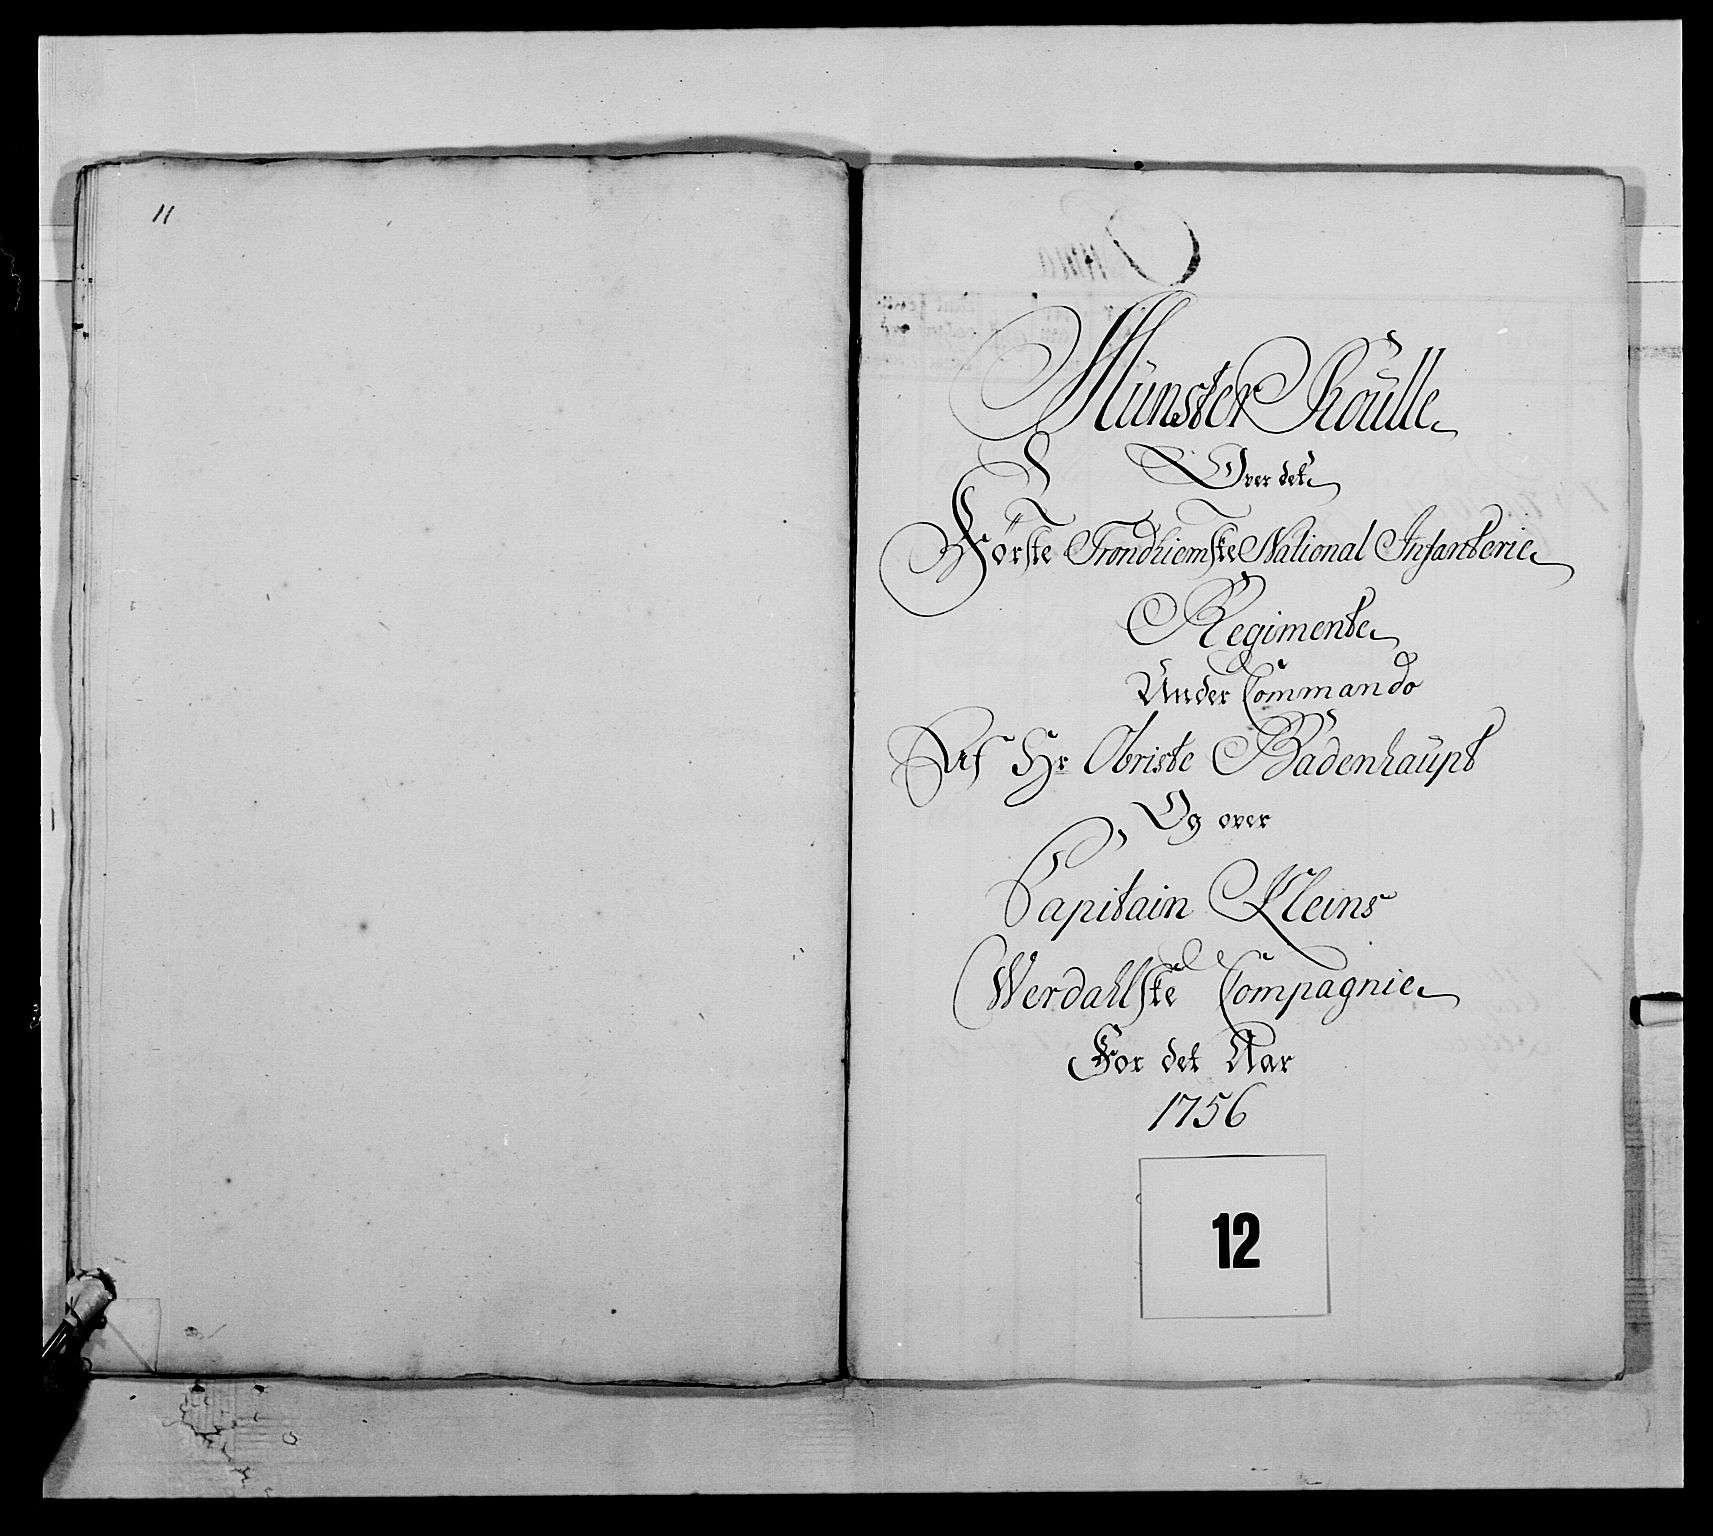 11
Münster Roulle
Over det
Förste Trondhiemske National Infanterie
Regimente
Under Commando
Af Hr Obriste Badenhaupt
Og over
Capitain Kleins
Werdahlske Compagnie
For det Aar
1756
12